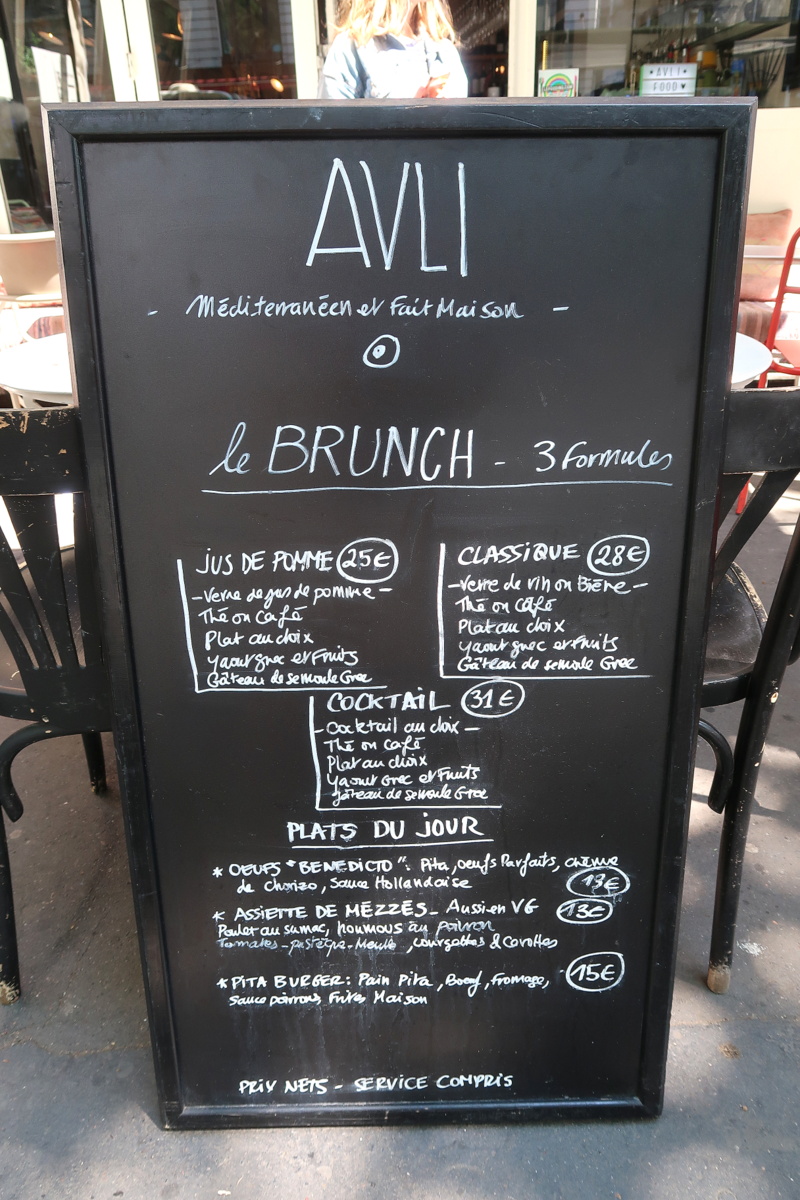 AVLI
FOOD ♥
AVLI
- Méditerranéen et Fait Maison -
le BRUNCH - 3 Formules
JUS DE POMME 25€
- Verre de jus de pomme -
Thé ou Café
Plat au choix
Yaourt grec et Fruits
Gâteau de semoule Grec
CLASSIQUE 28€
- Verre de vin ou Bière -
Thé ou Café
Plat au choix
Yaourt grec et Fruits
Gâteau de semoule Grec
COCKTAIL 31€
- Cocktail au choix -
Thé ou Café
Plat au choix
Yaourt Grec et Fruits
Gâteau de semoule Grec
PLATS DU JOUR
* OEUFS "BENEDICTO": Pita, oeufs Parfaits, crème
de Chorizo, Sauce Hollandaise 13€
* ASSIETTE DE MEZZES - Aussi en VG 13€
Poulet au sumac, houmous au poivron
Tomates - pastèque - Menthe, courgettes & Carottes
* PITA BURGER: Pain Pita, Boeuf, fromage, 15€
sauce poivrons Frites Maison
PRIX NETS - SERVICE COMPRIS